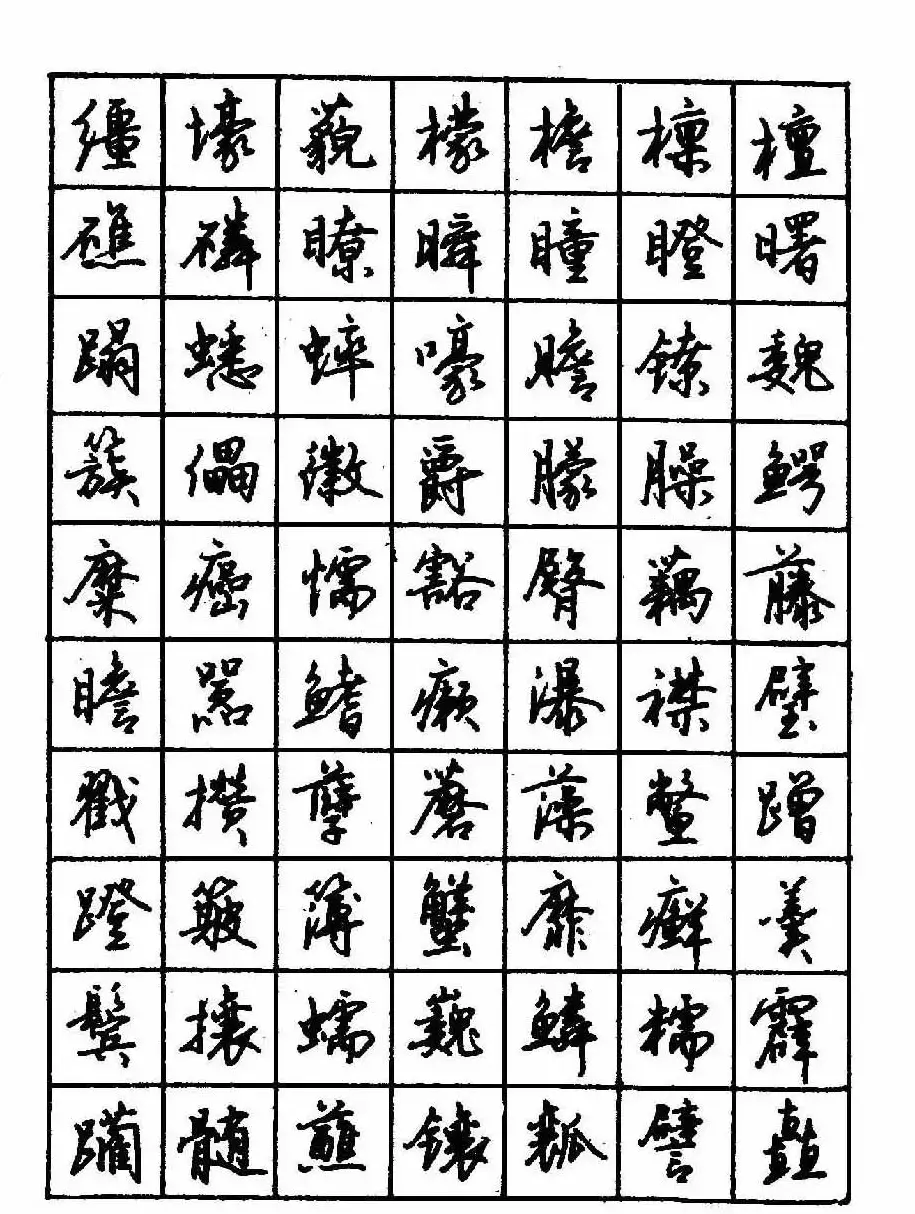 缰 壕 藐 檬 檐 檩 檀
礁 磷 瞭 瞬 瞳 瞪 曙
蹋 蟋 蟀 嚎 赡 镣 魏
簇 儡 徽 爵 朦 臊 鳄
糜 癌 懦 豁 臀 藕 藤
瞻 嚣 鳍 癞 瀑 襟 璧
戳 攒 孽 蘑 藻 鳖 蹭
蹬 簸 簿 蟹 靡 癣 羹
鬓 攘 蠕 巍 鳞 糯 霹
躏 髓 蘸 镶 瓤 譬 矗